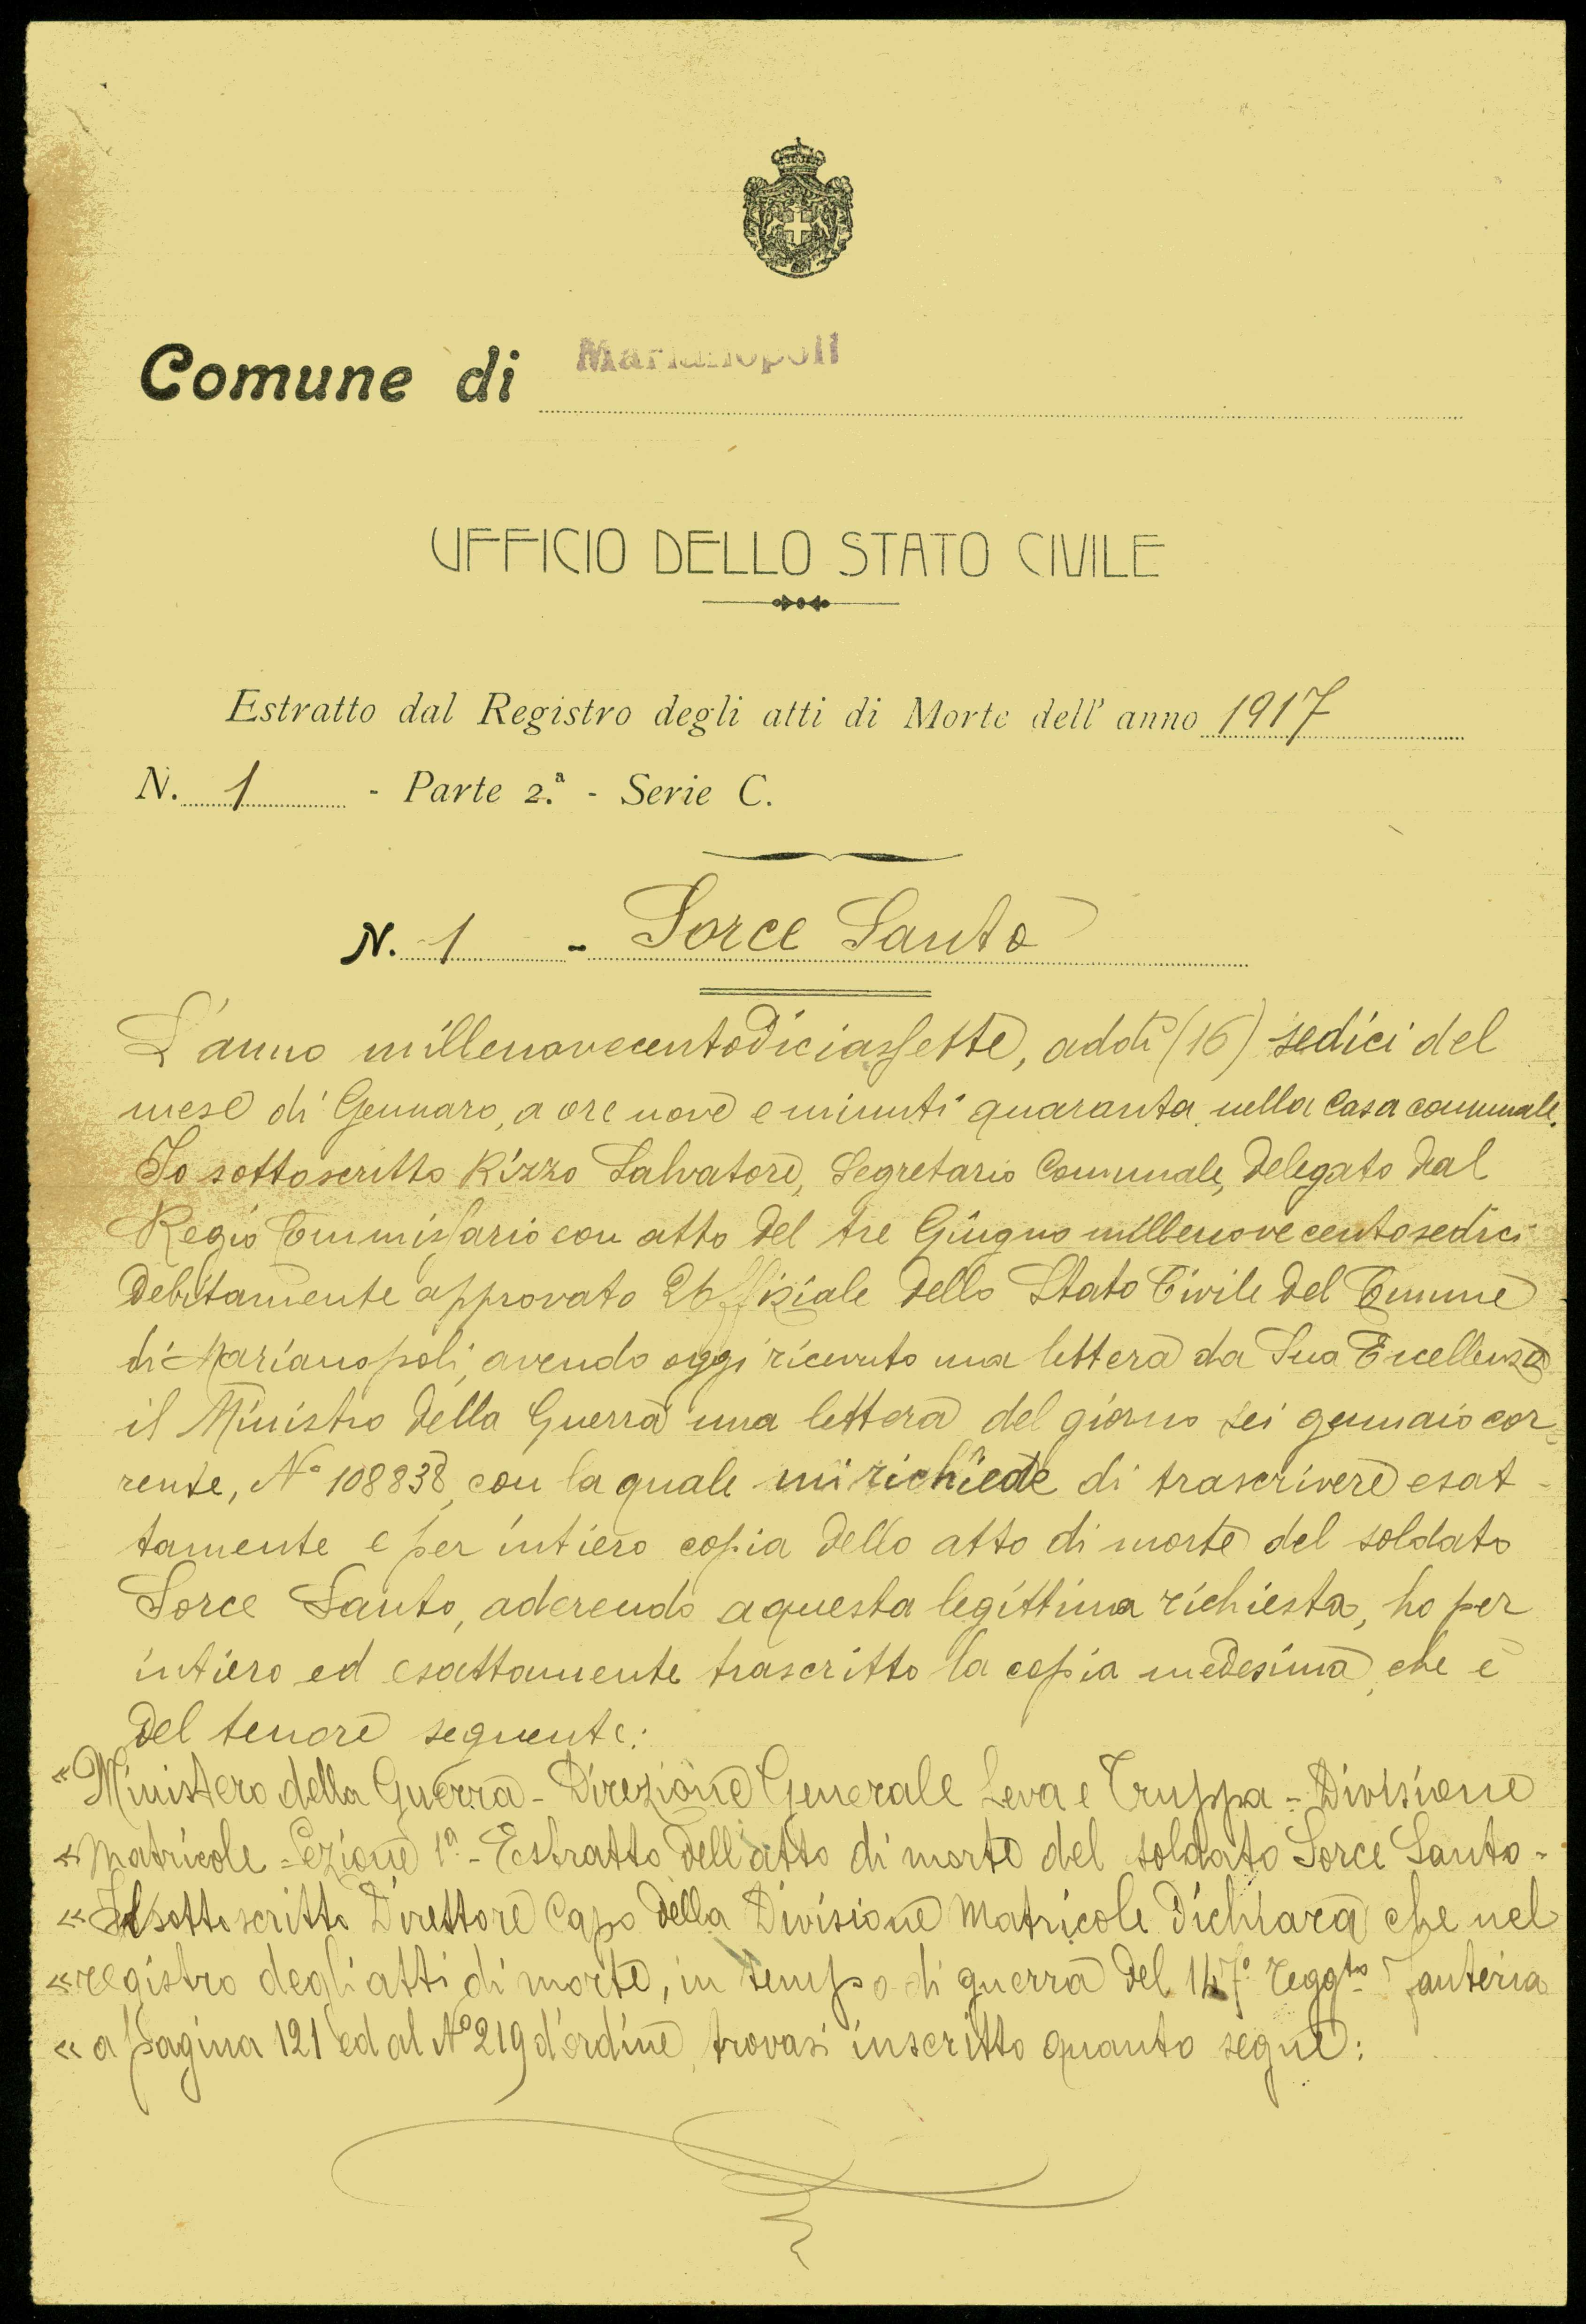 Comune di Marianopoli
UFFICIO DELLO STATO CIVILE
Estratto dal Registro degli atti di Morte dell' anno 1917
N. 1 - Parte 2.ª - Serie C.
N. 1 - Sorce Santo
L'anno millenovecentodiciassette, addì (16) sedici del
mese di Gennaro, a ore nove e minuti quaranta, nella Casa comunale.
Io sottoscritto Rizzo Salvatore, Segretario Comunale, delegato dal
Regio Commissario con atto del tre Giugno millenovecentosedici
debitamente approvato Uffiziale dello Stato Civile del Comune
di Marianopoli, avendo oggi ricevuto una lettera da Sua Eccellenza
il Ministro della Guerra una lettera del giorno sei gennaio cor-
rente, N° 108838, con la quale mi richiede di trascrivere esat-
tamente e per intiero copia dello atto di morte del soldato
Sorce Santo, aderendo a questa legittima richiesta, ho per
intiero ed esattamente trascritto la copia medesima, che è
del tenore seguente:
"Ministero della Guerra - Direzione Generale Leva e Truppa - Divisione
"Matricole - Sezione 1ª - Estratto dell'atto di morte del soldato Sorce Santo -
"Il sottoscritto Direttore Capo della Divisione Matricole dichiara che nel
"registro degli atti di morte, in tempo di guerra del 147° regg.to Fanteria
"a pagina 121 ed al N° 219 d'ordine, trovasi inscritto quanto segue: